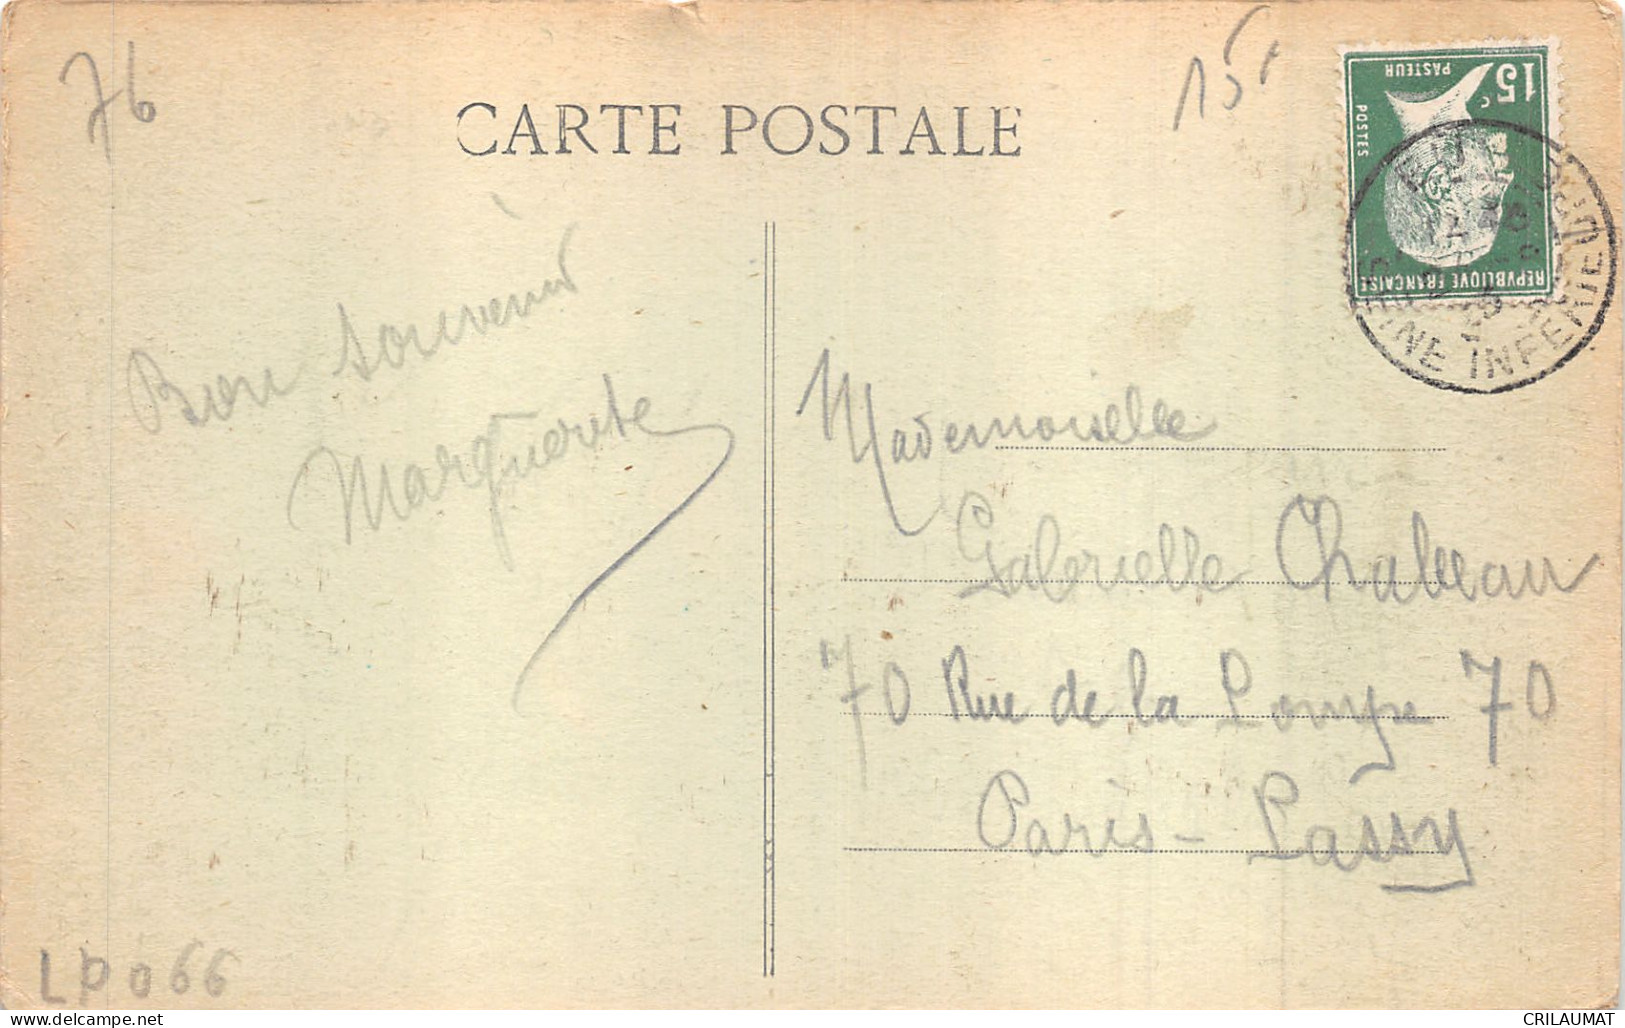 76
15f
CARTE POSTALE
15c
PASTEUR
POSTES
REPVBLIQVE FRANÇAISE
EU
INE INFERIE
Bon souvenir
Marguerite
Mademoiselle
Gabrielle
70 Rue de la Pompe 70
Paris - Passy
LP 066
CRILAUMAT